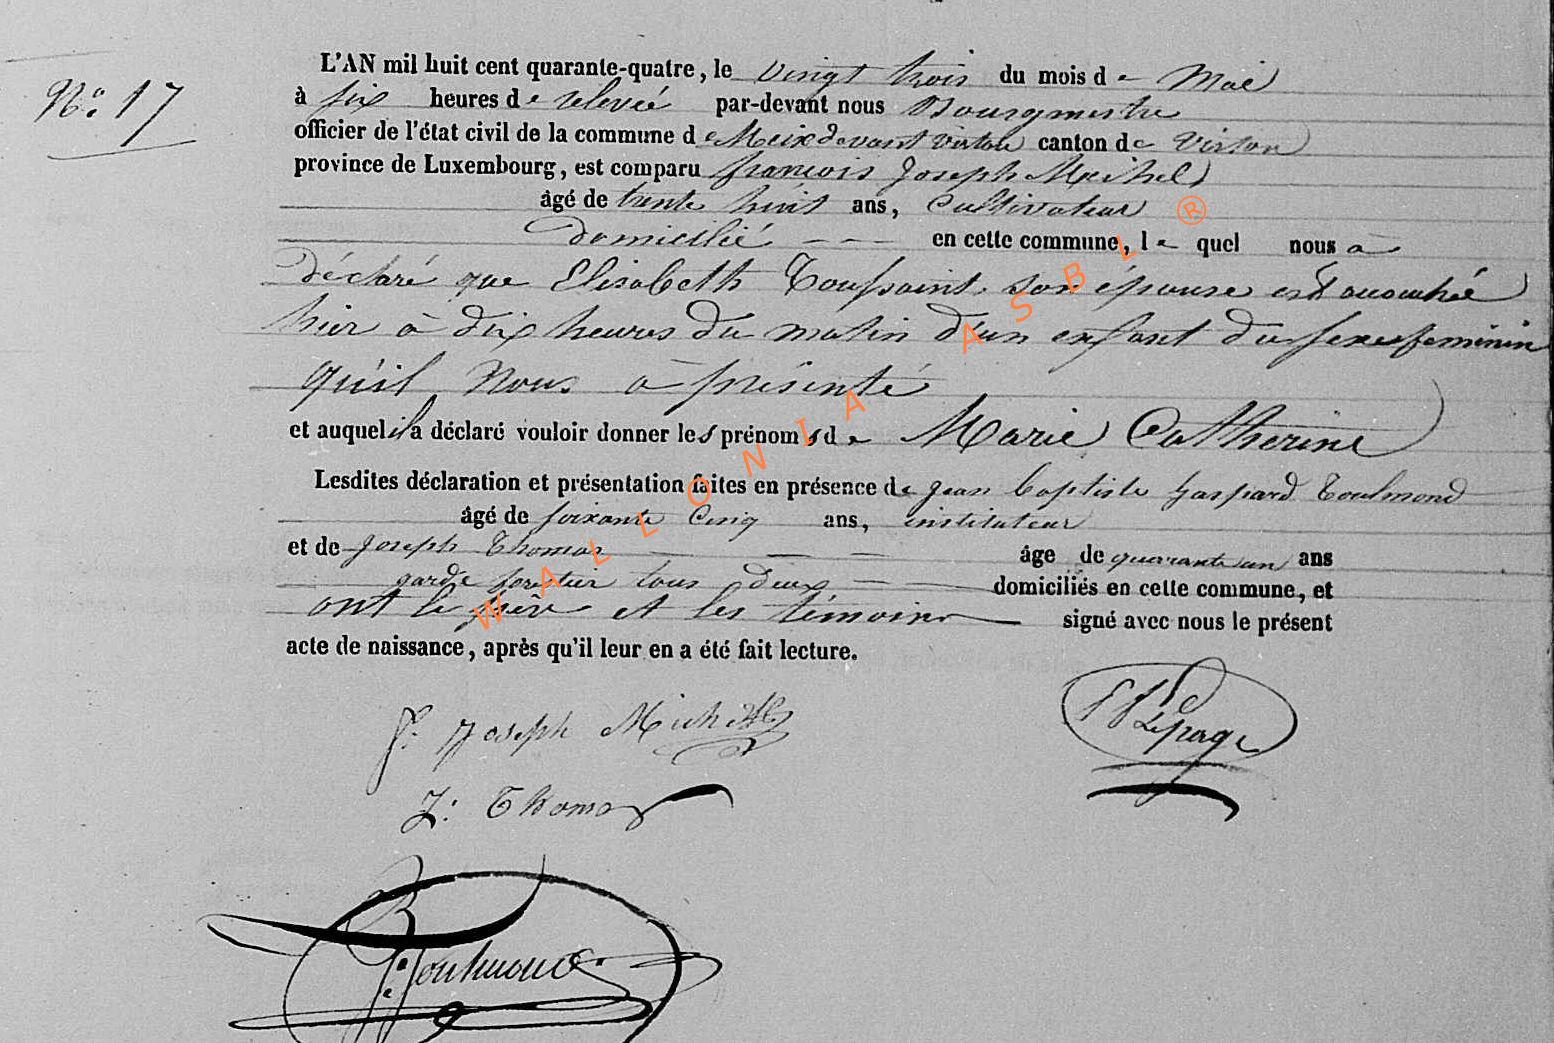 N.o 17
L'AN mil huit cent quarante-quatre, le vingt trois du mois de Mai
à six heures de relevée par-devant nous Bourgmestre
officier de l'état civil de la commune de Meix devant virton canton de Virton
province de Luxembourg, est comparu françois Joseph Michel
âgé de trente huit ans, Cultivateur
domicilié en cette commune, lequel nous à
déclaré que Elisabeth Toussaint son épouse est accouchée
hier à dix heures du matin d'un enfant du sexe feminin
qu'il nous à présenté
et auquel il a déclaré vouloir donner les prénoms de Marie Catherine
Lesdites déclaration et présentation faites en présence de jean baptiste gaspard Toulmond
âgé de soixante cinq ans, instituteur
et de joseph Thomas âge de quarante un ans
garde forestier tous deux domiciliés en cette commune, et
ont le père et les témoins signé avec nous le présent
acte de naissance, après qu'il leur en a été fait lecture.
f. Joseph Michel
Lepage
J: Thomas
Toulmond
WALLONIA ASBL ®